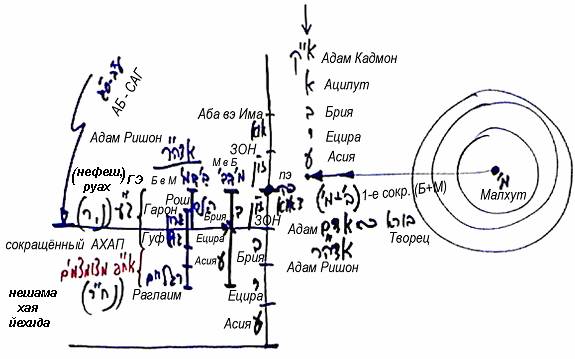 Адам Кадмон
א Ацилут
ב Брия
י Ецира
ע Асия
АБ - САГ
Аба вэ Има
Адам Ришон
ЗОН
זו"ן
אדה"ר
М в Б
Б в М
пэ
(нефеш,
руах)
ГЭ
Рош
Гарон
Брия
ЗОН
1-е сокр. (Б+М)
Малхут
מ'
Адам
אדם ~ בורא
Творец
сокращённый АХАП
Гуф
Ецира
ב
Брия
Адам Ришон
אדה"ר
Асия ע
нешама
хая
йехида
Раглаим
י
Ецира
Асия ע